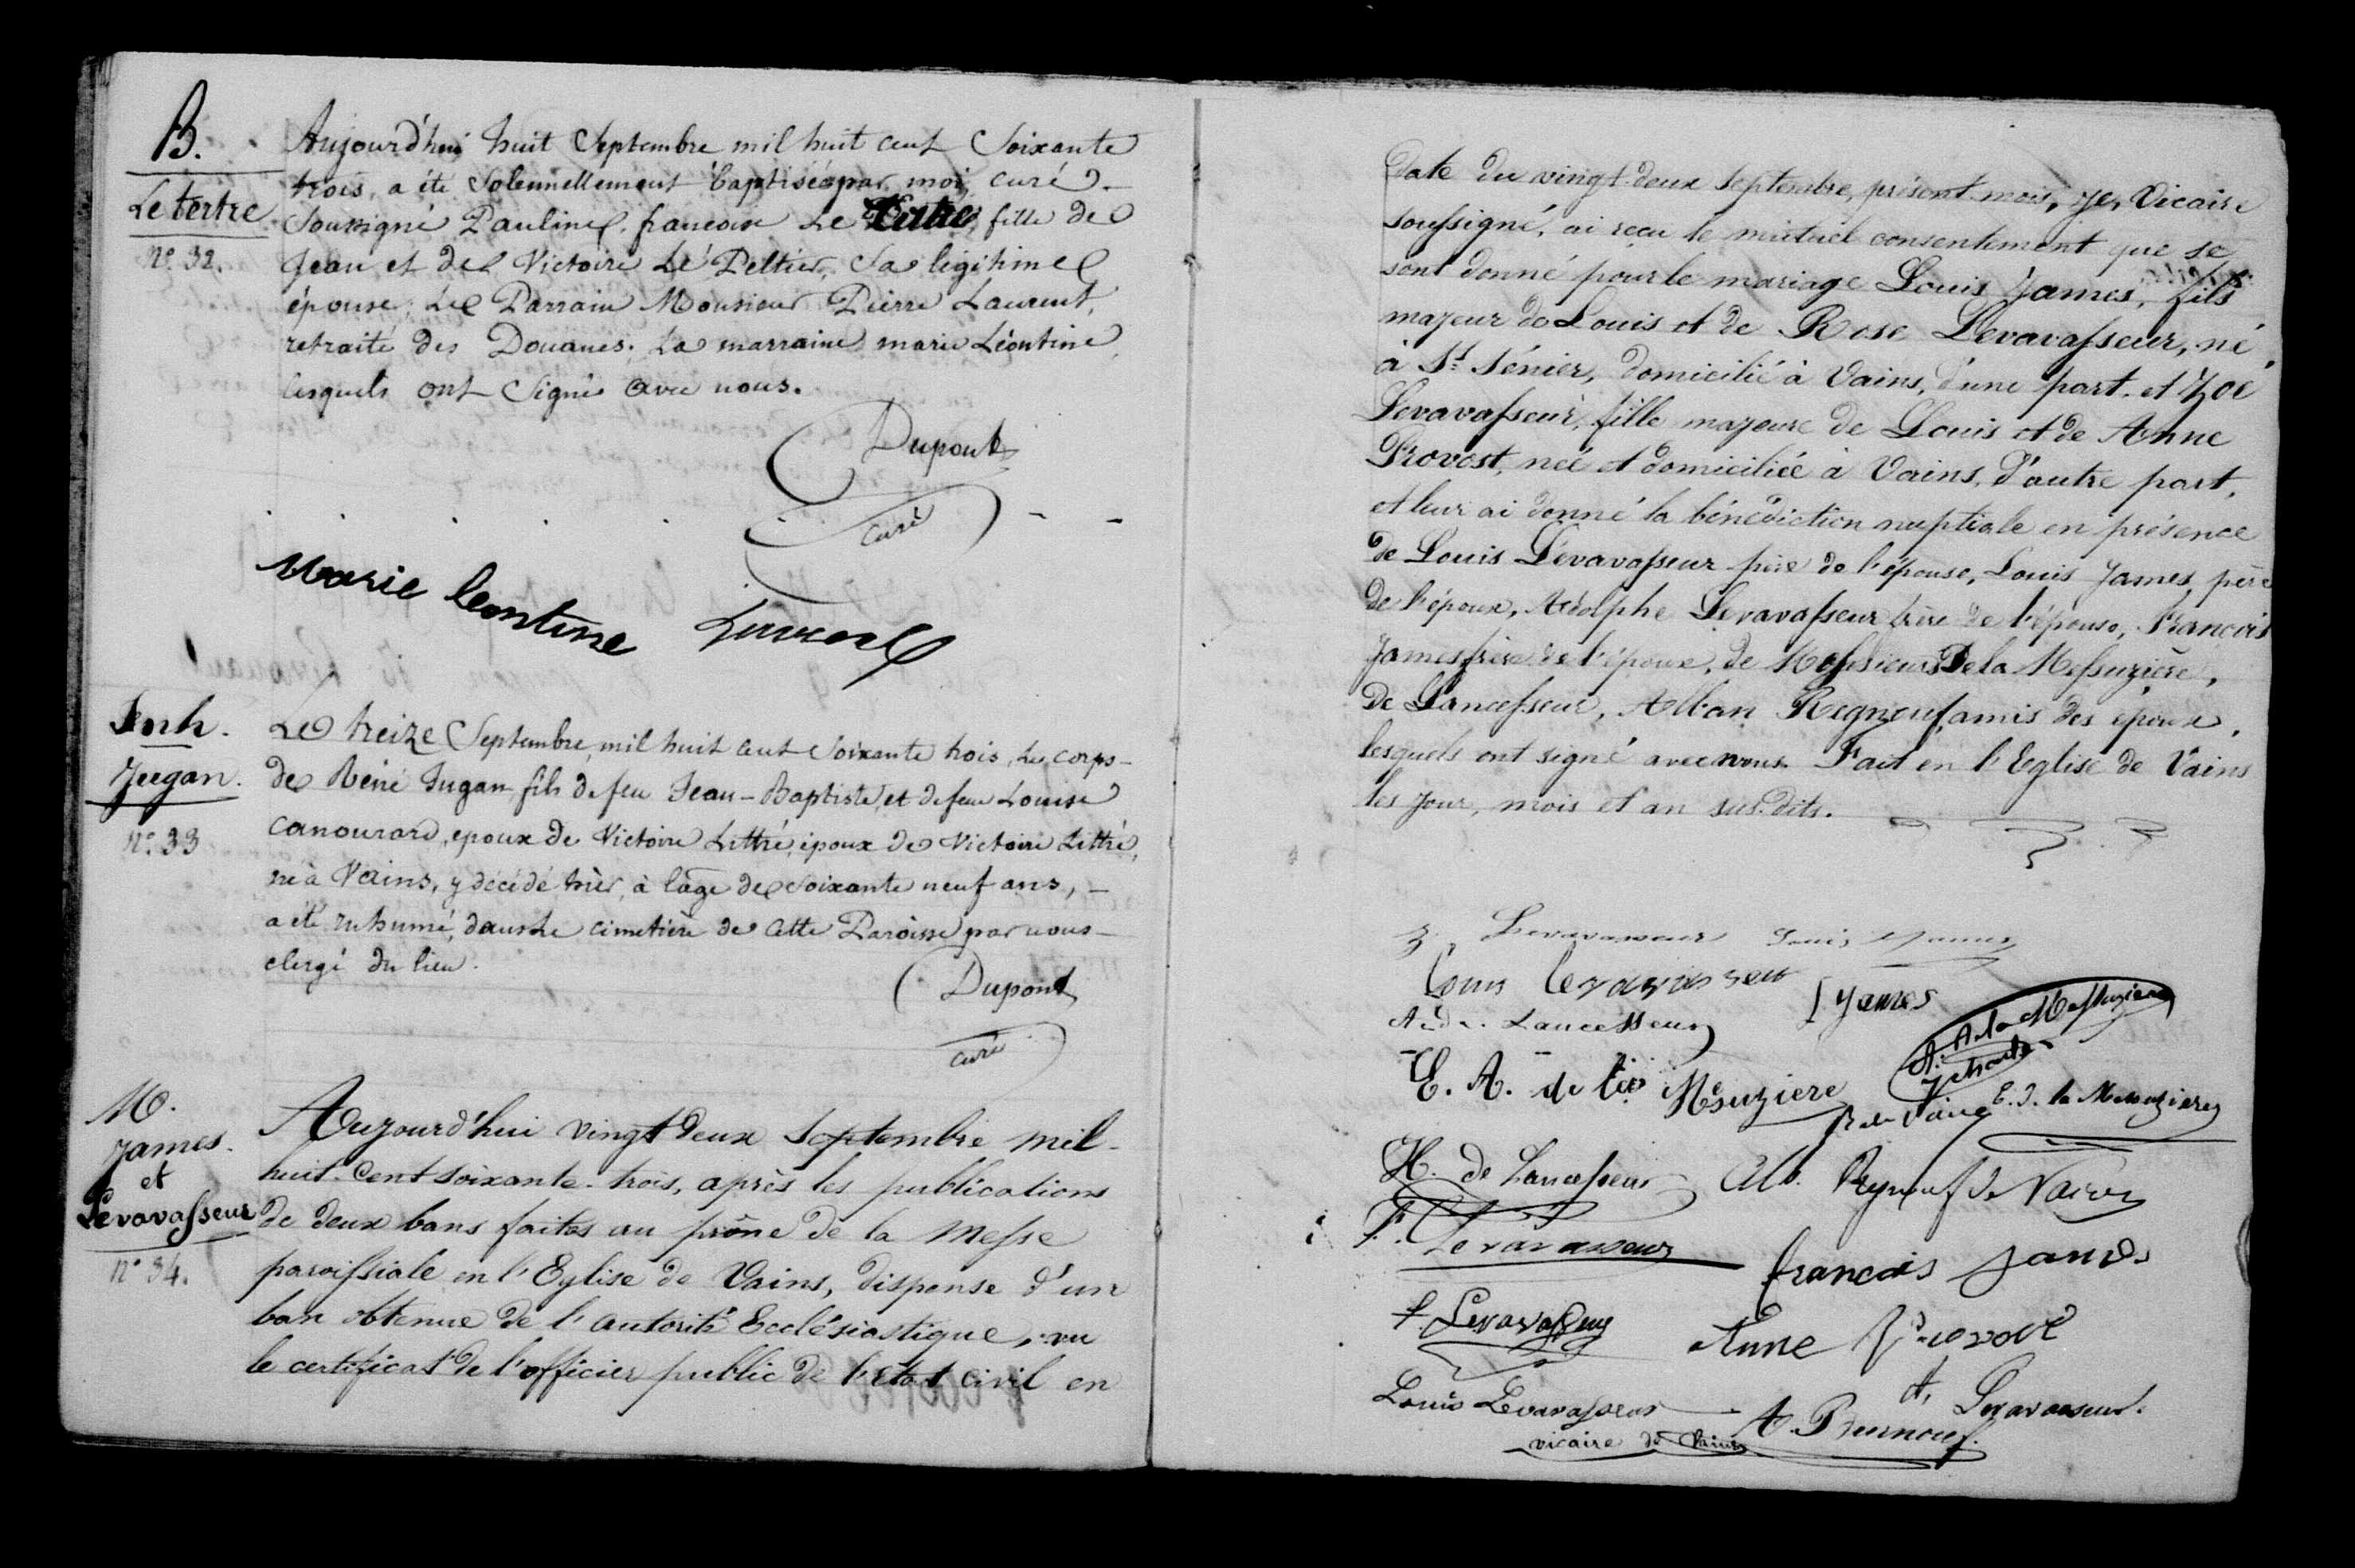 B.
Le tertre
nº 32.
Aujourd'hui huit Septembre mil huit cent Soixante
trois, a été Solennellement baptisée par moi, curé
Soussigné Pauline francoise Le Tertre, fille de
Jean et de Victoire Le Peltier, Sa legitime
épouse; Le Parrain Monsieur Pierre Laurent,
retraité des Douanes. La marraine marie Léontine
lesquels ont Signé avec nous.
Dupont
curé
Marie leontine Laurent
Inh.
Jugan.
nº 33
Le treize Septembre mil huit cent Soixante trois, Le corps
de Réné Jugan fils de feu Jean-Baptiste et de feue Louise
canourard, epoux de Victoire Littré, époux de Victoire Littré,
né à Vains, y décédé hier, à l'age de soixante neuf ans,
a été Inhumé, dans Le cimetière de cette Paroisse par nous
clergé du lieu.
Dupont
curé
M.
James.
et
Levavasseur
nº 34.
Aujourd'hui vingt deux Septembre mil
huit cent soixante-trois, après les publications
de deux bans faites au prône de la Messe
paroissiale en l'Eglise de Vains, dispense d'un
ban obtenue de l'autorité Ecclésiastique, vu
le certificat de l'officier public de l'état civil en
date du vingt-deux Septembre, présent mois, Je, Vicaire
soussigné, ai reçu le mutuel consentement que se
sont donné pour le mariage Louis James, fils
majeur de Louis et de Rose Levavasseur, né
à St Sénier, domicilié à Vains, d'une part. et Zoé
Levavasseur, fille majeure de Louis et de Anne
Provost, née et domiciliée à Vains, d'autre part,
et leur ai donné la bénédiction nuptiale en présence
de Louis Levavasseur père de l'épouse, Louis James père
de l'époux, Adolphe Levavasseur frère de l'épouse, Francois
James frère de l'époux, de Messieurs De la Messuzière,
De Lancesseur, Alban Regneuf amis des époux,
lesquels ont signé avec nous. Fait en l'Eglise de Vains
les jour, mois et an susdits.
Z. Levavasseur Louis James
Louis levavasseur L James
A. de. Lancesseur
A. de la Messuzière
E. A. de la Mésuziere
E. J. la Messuzière
H. de Lancesseur Alb. Regneuf de Vains
F. Levavasseur
francois James
f. Levavasseur
Anne Provost
A, Levavasseur.
Louis Levavasseur A. Burnouf.
vicaire de Vains